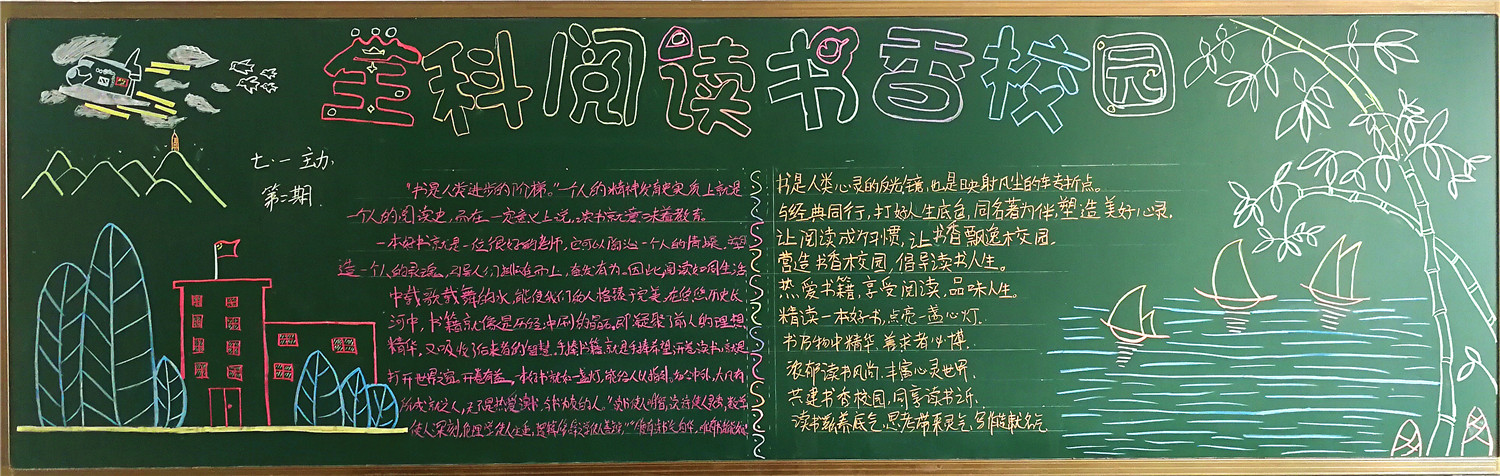 全科阅读书香校园
七·一 主办
第二期
"书是人类进步的阶梯。"一个人的精神发育史实质上就是
一个人的阅读史,而在一定意义上说,读书就意味着教育。
一本好书就是一位很好的老师,它可以陶冶一个人的情操,塑
造一个人的灵魂,引导人们
因此,阅读如同生活
中载歌载舞的水,能使我们的人格臻于完美。在悠悠历史长
河中,书籍就像是历经冲刷的晶石,即凝聚了前人的理想
精华,又吸收了后来者的智慧。手捧书籍,就是手捧希望,开卷读书,就是
打开世界窗。开卷有益。一本好书就如一盏灯,能给人以指引。
所成就之人,无不是热爱读书
的人。
使人深刻,伦理学使人庄重,
书是人类心灵的反光镜,也是映射风尘的车转折点。
与经典同行,打好人生底色,同名著为伴,塑造美好心录。
让阅读成为习惯,让书香飘逸校园。
营造书香校园,倡导读书人生。
热爱书籍,享受阅读,品味人生。
精读一本好书,点亮一盏心灯。
书乃物中精华,善求者必博。
浓郁读书风尚,丰富心灵世界。
共建书香校园,同享读书之乐。
读书滋养底气,思考带来灵气,写作造就名气